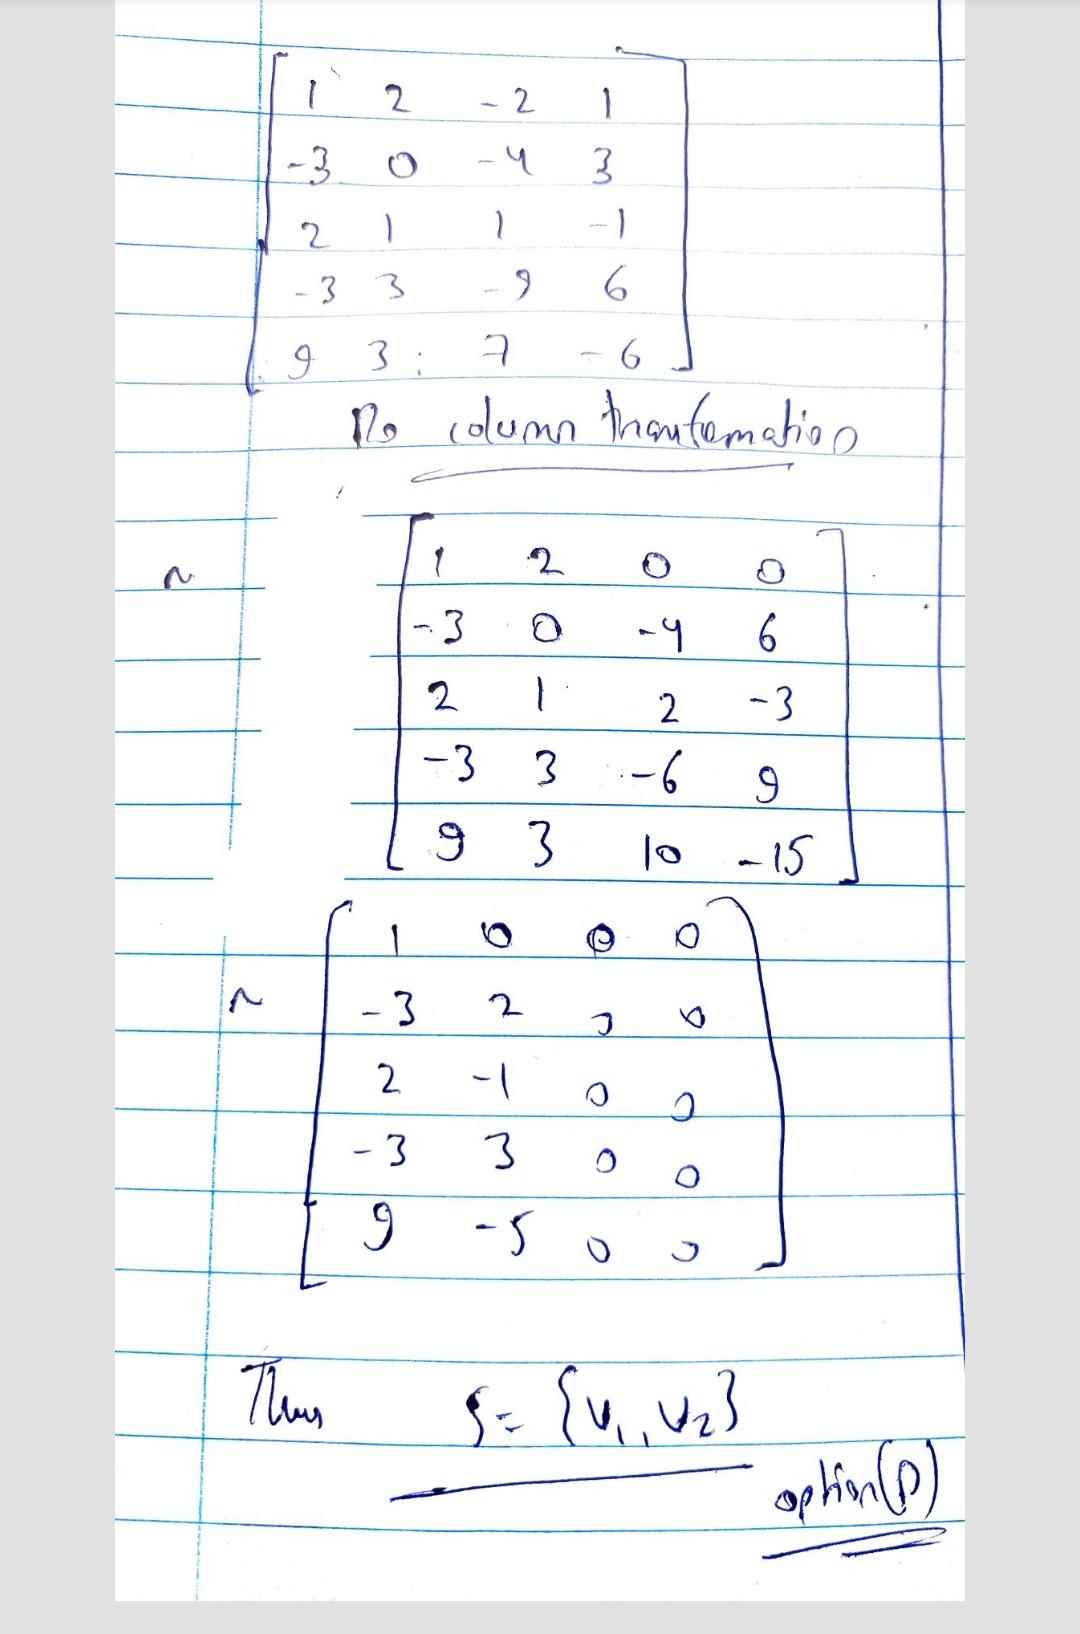 1 2 -2 1
-3 0 -4 3
2 1 1 -1
-3 3 -9 6
9 3 7 -6
column
~
1 2 0 0
-3 0 -4 6
2 1 2 -3
-3 3 -6 9
9 3 10 -15
~
1 0 0 0
-3 2 0 0
2 -1 0 0
-3 3 0 0
9 -5 0 0
Thus S = {v1, v2}
option(D)